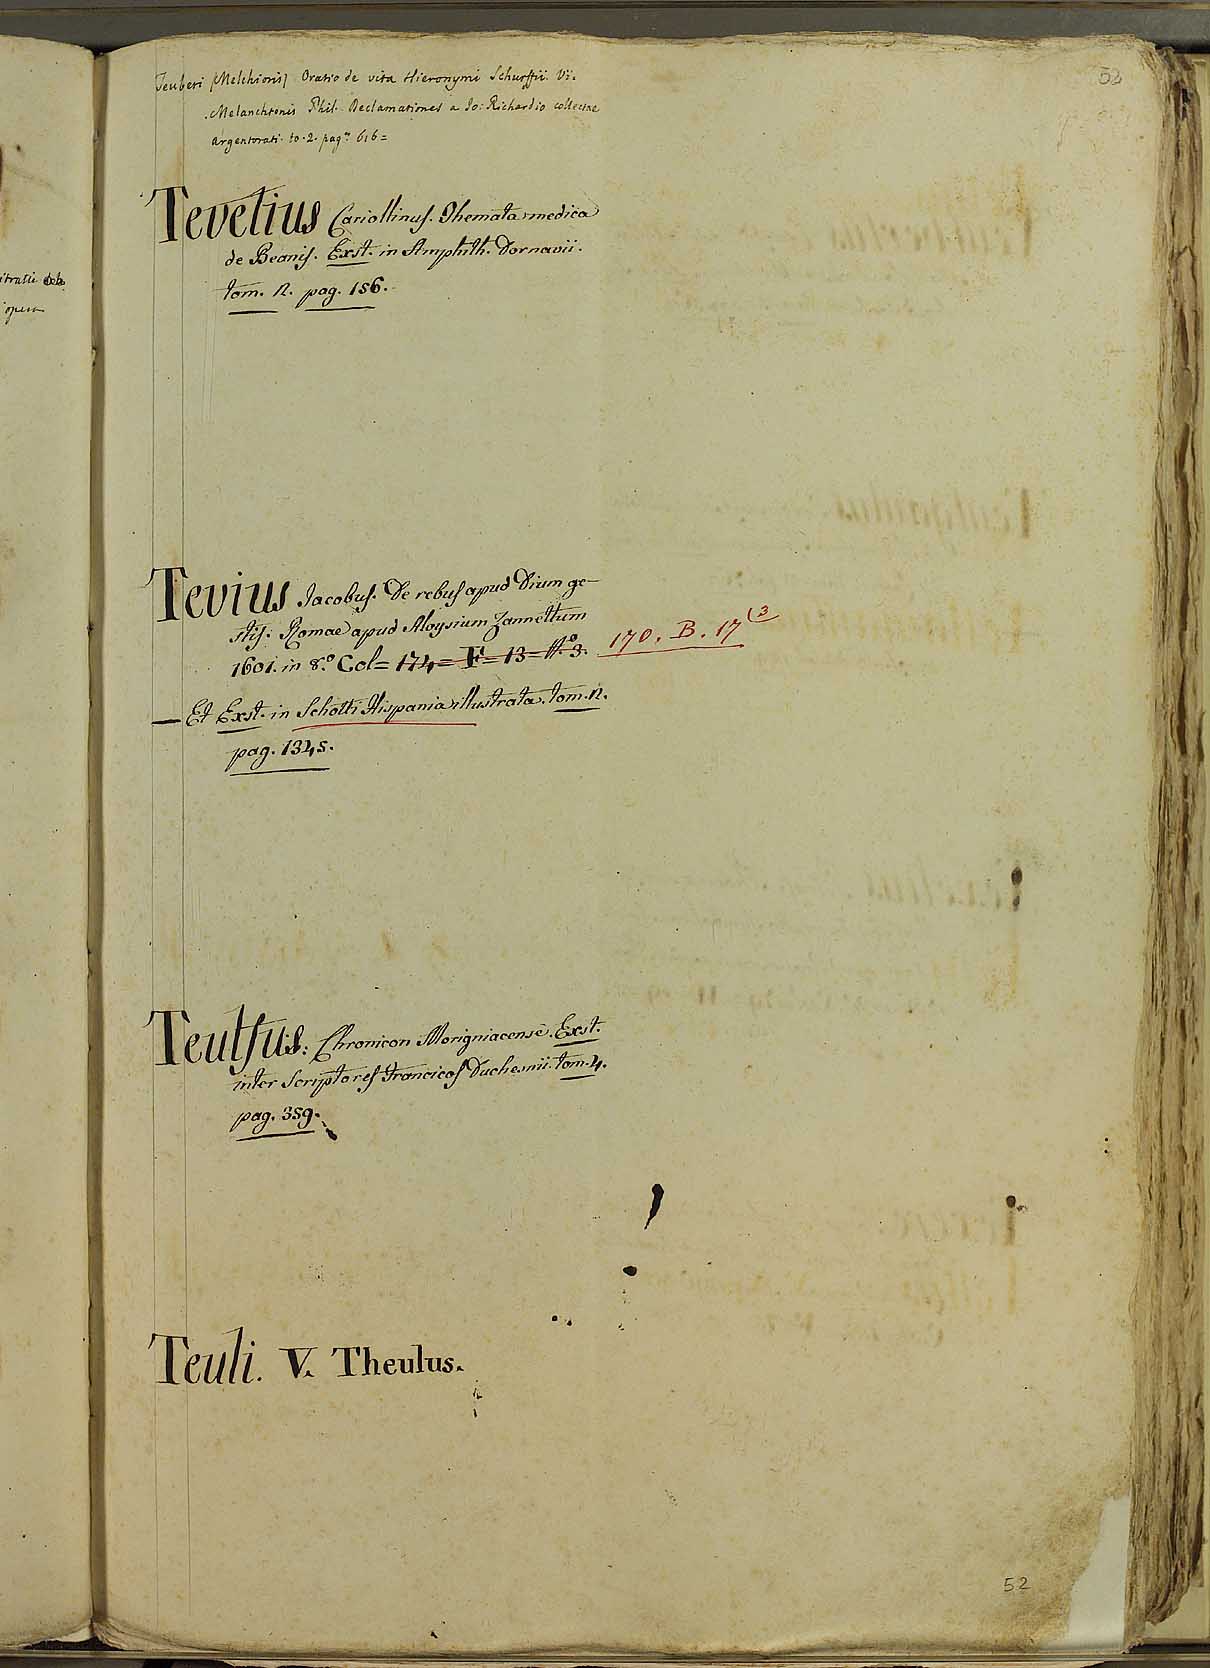 52
Teuberi (Melchioris) Oratio de vita Hieronymi Schurffii. Vi.
Melanchtonis Phil. Declamationes a Jo. Richardio collectae
argentorati. to. 2. pag. 616=
Tevetius Cariollinus. Themata medica
de Beanis. Exst. in Amphith. Dornavii.
tom. 2. pag. 156.
Tevius Jacobus. De rebus apud Dium ge-
stis. Romae apud Aloysium Zannettum
1601. in 8.º Col= 174= F= 13= N.º 3. 170. B. 17(3
— Et Exst. in Schotti Hispania illustrata. tom. 2.
pag. 1345.
Teulfus: Chronicon Morigniacense. Exst.
inter Scriptores Francicos Duchesnii. tom. 4.
pag. 359.
Teuli. V. Theulus.
opera
52